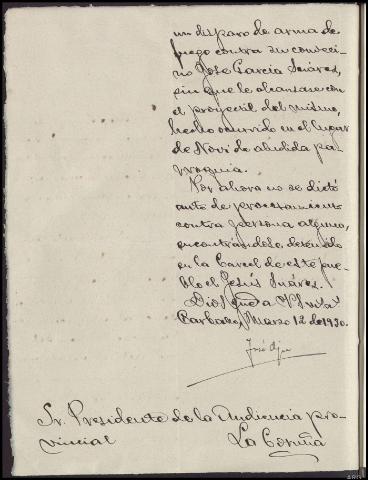 un disparo de arma de
fuego contra su conveci-
no José García Suárez,
sin que le alcanzase con
el proyectil del mismo,
hecho ocurrido en el lugar
de Novi de aludida pa-
rroquia.
Por ahora no se dictó
auto de procesamiento
contra persona alguna,
encontrándose detenido
en la Carcel de este pue-
blo el Jesús Suárez.
Dios gue a V.S.
Marzo 12 de 1930.
José
Sr. Presidente de la Audiencia pro-
vincial
La Coruña